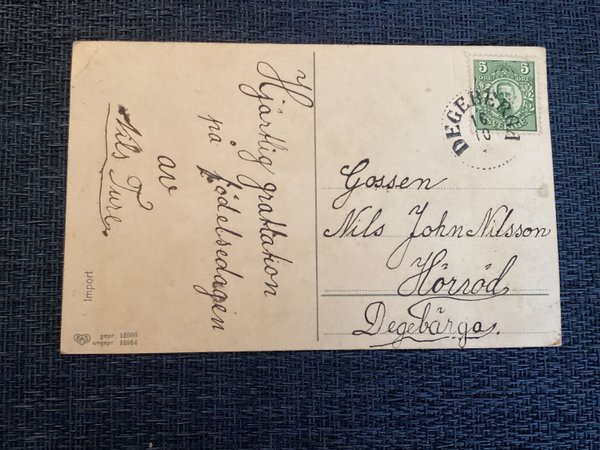 Hjärtlig grattation
på födelsedagen
av
Nils Ture
Import
gepr 16993
ungepr 16964
5 5
DEGEBERGA
16
10
Gossen
Nils John Nilsson
Hörröd
Degebärga.